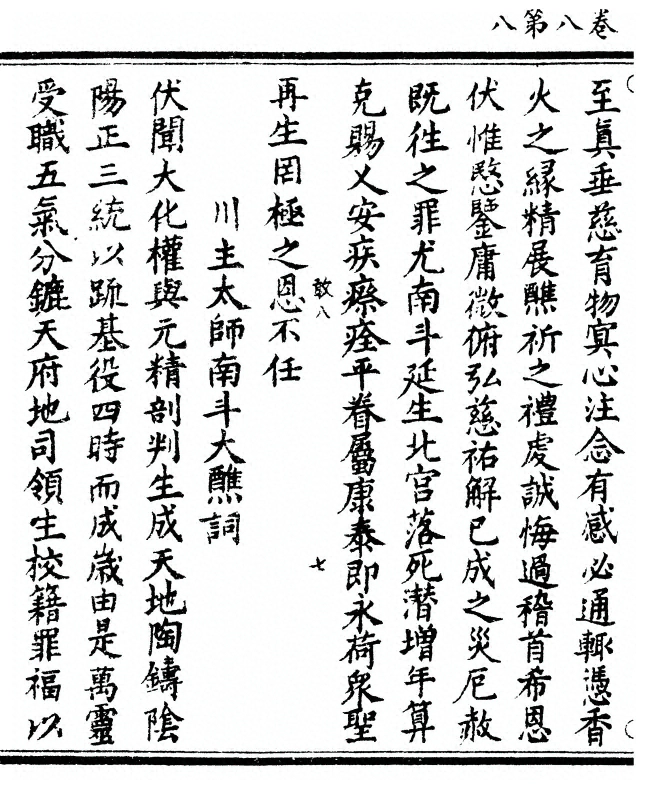 卷八第八
至眞垂慈育物㝠心注念有感必通輙憑香
火之縁精展醮祈之禮虔誠悔過稽首希恩
伏惟愍鑒庸微俯弘慈祐解已成之災厄赦
既徃之罪尤南斗延生北宫落死潜增年算
克賜乂安疾瘵痊平眷屬康泰即永荷衆聖
再生罔極之恩不任
敢八
七
川主太師南斗大醮詞
伏聞大化權輿元精剖判生成天地陶鑄隂
陽正三統以䟽基役四時而成歳由是萬靈
受職五氣分鑣天府地司領生校籍罪福以